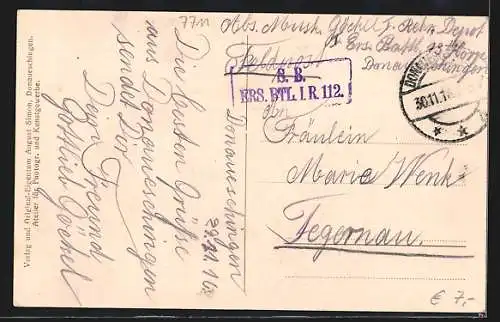 7711
Abs. Musk. Göckel I. Rekr. Depot
Ers. Batl.
Feldpost
Donaueschingen
S. B.
ERS. BTL. I. R. 112.
30.11.16
An
Fräulein
Maria Wenk
Tegernau.
€ 7,-
Donaueschingen
29.XI.16
Die besten Grüße
aus Donaueschingen
sendet Dir
Dein Freund
Gottlieb Göckel
Verlag und Original-Eigentum August Simon, Donaueschingen.
Atelier für Photogr. und Kunstgewerbe.